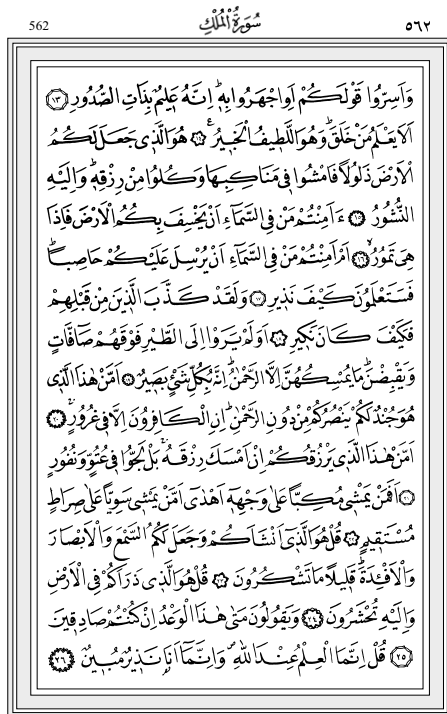 562 سُورَةُ الْمُلْكِ ٥٦٢
وَاَسِرُّوا قَوْلَكُمْ اَوِ اجْهَرُوا بِهٖؕ اِنَّهُ عَلٖيمٌ بِذَاتِ الصُّدُورِ ﴿١٣﴾
اَلَا يَعْلَمُ مَنْ خَلَقَؕ وَهُوَ اللَّطٖيفُ الْخَبٖيرُࣖ ﴿١٤﴾ هُوَ الَّذٖي جَعَلَ لَكُمُ
الْاَرْضَ ذَلُولًا فَامْشُوا فٖي مَنَاكِبِهَا وَكُلُوا مِنْ رِزْقِهٖؕ وَاِلَيْهِ
النُّشُورُ ﴿١٥﴾ ءَاَمِنْتُمْ مَنْ فِي السَّمَٓاءِ اَنْ يَخْسِفَ بِكُمُ الْاَرْضَ فَاِذَا
هِيَ تَمُورُۙ ﴿١٦﴾ اَمْ اَمِنْتُمْ مَنْ فِي السَّمَٓاءِ اَنْ يُرْسِلَ عَلَيْكُمْ حَاصِبًاؕ
فَسَتَعْلَمُونَ كَيْفَ نَذٖيرِ ﴿١٧﴾ وَلَقَدْ كَذَّبَ الَّذٖينَ مِنْ قَبْلِهِمْ
فَكَيْفَ كَانَ نَكٖيرِ ﴿١٨﴾ اَوَلَمْ يَرَوْا اِلَى الطَّيْرِ فَوْقَهُمْ صَٓافَّاتٍ
وَيَقْبِضْنَؕ مَا يُمْسِكُهُنَّ اِلَّا الرَّحْمٰنُؕ اِنَّهُ بِكُلِّ شَيْءٍ بَصٖيرٌ ﴿١٩﴾ اَمَّنْ هٰذَا الَّذٖي
هُوَ جُنْدٌ لَكُمْ يَنْصُرُكُمْ مِنْ دُونِ الرَّحْمٰنِؕ اِنِ الْكَافِرُونَ اِلَّا فٖي غُرُورٍۚ ﴿٢٠﴾
اَمَّنْ هٰذَا الَّذٖي يَرْزُقُكُمْ اِنْ اَمْسَكَ رِزْقَهُۚ بَلْ لَجُّوا فٖي عُتُوٍّ وَنُفُورٍ
﴿٢١﴾ اَفَمَنْ يَمْشٖي مُكِبًّا عَلٰى وَجْهِهٖٓ اَهْدٰٓى اَمَّنْ يَمْشٖي سَوِيًّا عَلٰى صِرَاطٍ
مُسْتَقٖيمٍ ﴿٢٢﴾ قُلْ هُوَ الَّذٖٓي اَنْشَاَكُمْ وَجَعَلَ لَكُمُ السَّمْعَ وَالْاَبْصَارَ
وَالْاَفْـِٔدَةَؕ قَلٖيلًا مَا تَشْكُرُونَ ﴿٢٣﴾ قُلْ هُوَ الَّذٖي ذَرَاَكُمْ فِي الْاَرْضِ
وَاِلَيْهِ تُحْشَرُونَ ﴿٢٤﴾ وَيَقُولُونَ مَتٰى هٰذَا الْوَعْدُ اِنْ كُنْتُمْ صَادِقٖينَ
﴿٢٥﴾ قُلْ اِنَّمَا الْعِلْمُ عِنْدَ اللّٰهِࣕ وَاِنَّمَٓا اَنَا۬ نَذٖيرٌ مُبٖينٌ ﴿٢٦﴾